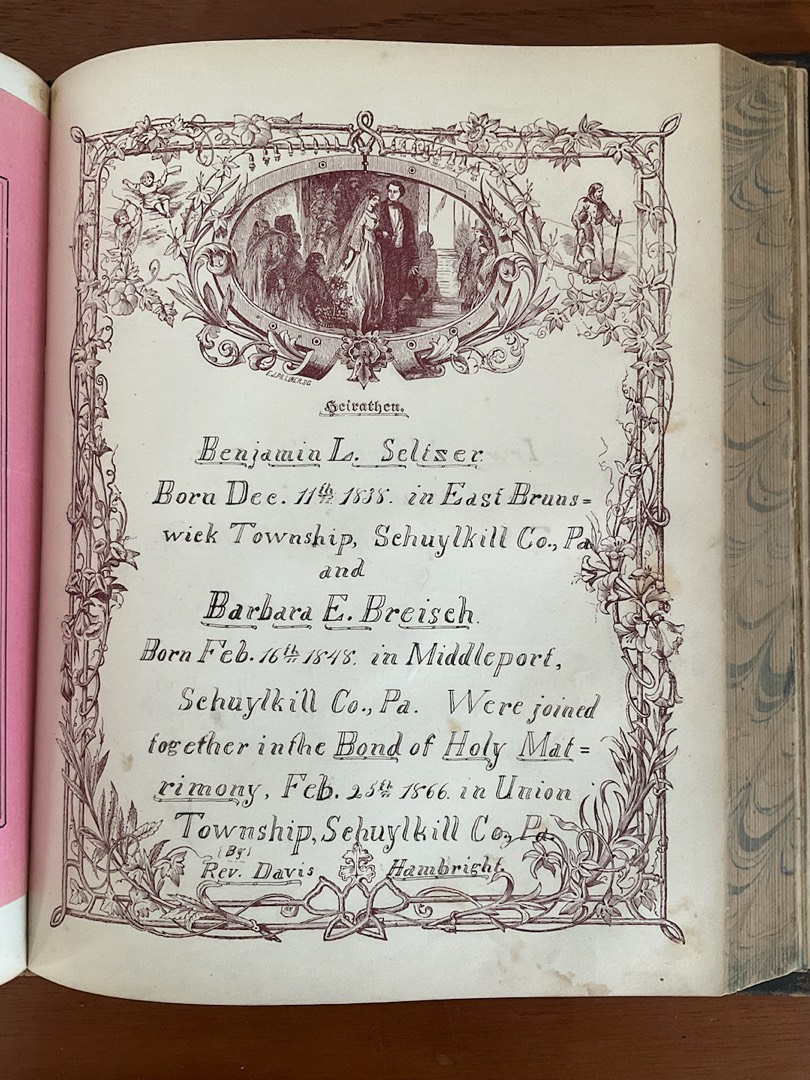 Heirathen.
Benjamin L. Seltzer
Born Dec. 11th 1838. in East Bruns=
wick Township, Schuylkill Co., Pa
and
Barbara E. Breisch.
Born Feb. 16th 1848. in Middleport,
Schuylkill Co., Pa. Were joined
together in the Bond of Holy Mat=
rimony, Feb. 25th 1866. in Union
Township, Schuylkill Co., Pa.
(By)
Rev. Davis Hambright.